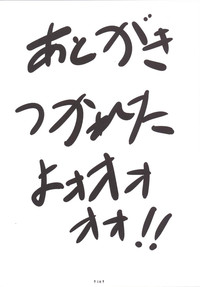 あとがき
つかれた
よォオォ
オォ!!